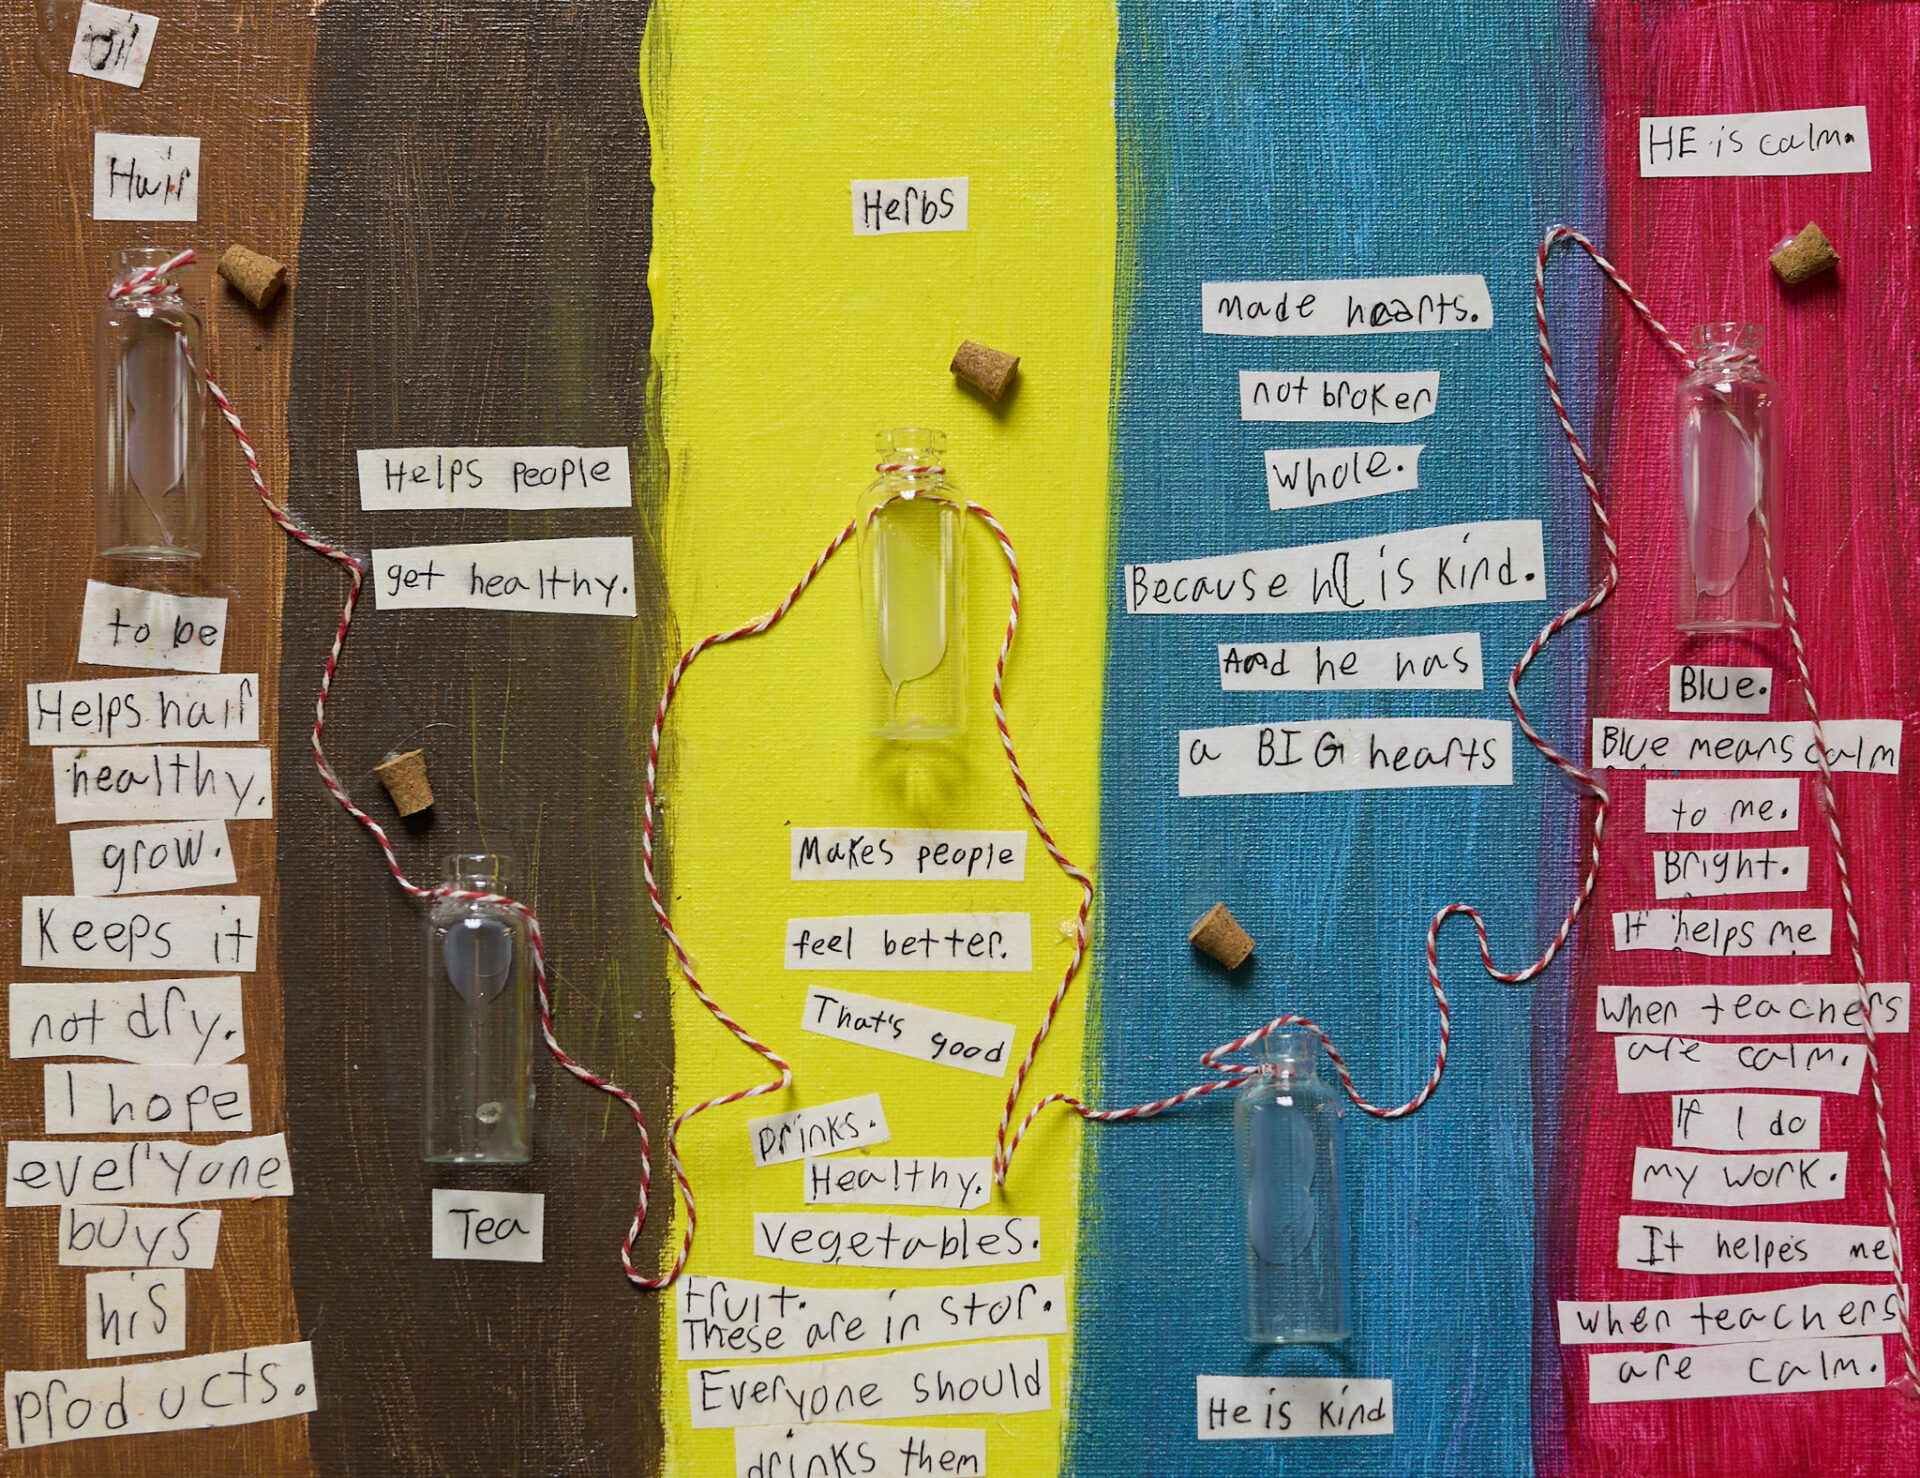 oil
Hair
to be
Helps hair
healthy.
grow.
Keeps it
not dry.
I hope
everyone
buys
his
products.
Helps people
get healthy.
Tea
Herbs
Makes people
feel better.
That's good
Drinks.
Healthy.
Vegetables.
Fruit.
These are in stor.
Everyone should
drinks them
made hearts.
not broken
whole.
Because he is kind.
And he has
a BIG hearts
He is kind
HE is calm.
Blue.
Blue means calm
to me.
Bright.
It helps me
when teachers
are calm.
If I do
my work.
It helpes me
when teachers
are calm.